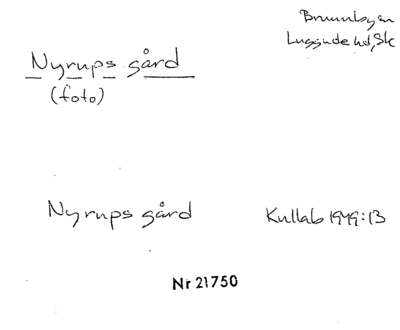 Brunnby sn
Luggude hd, Sk
Nyrups gård
(foto)
Nyrups gård Kullab 1949:13
Nr 21750